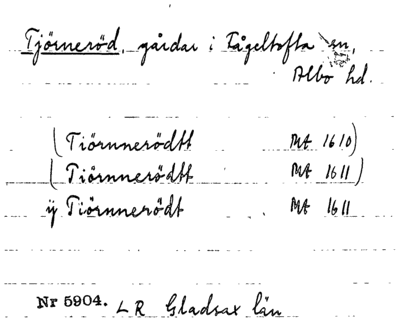 Tjörneröd, gårdar i Fågeltofta sn,
Albo hd.
(Tiörnnerödtt MA 1610)
(Tiörnnerödtt MA 1611)
ij Tiörnnerödt MA 1611
Nr 5904. LR Gladsax län